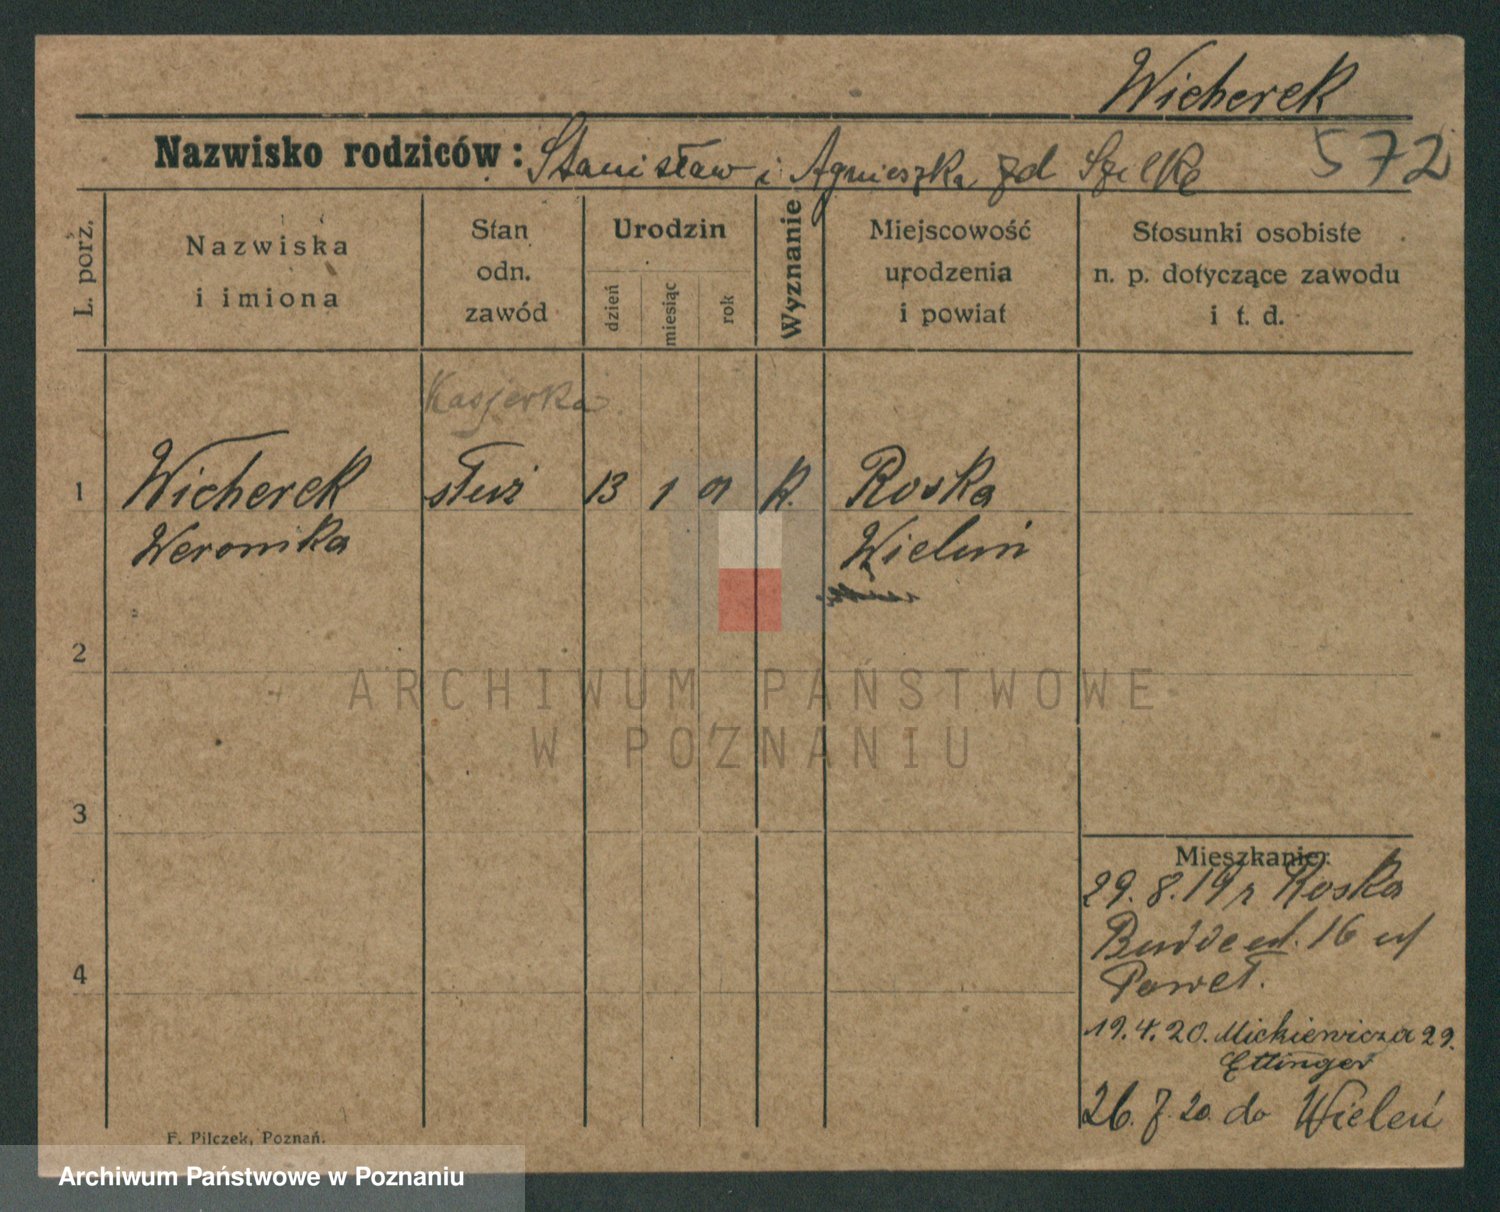 Wicherek
Nazwisko rodziców: Stanisław i Agnieszka zd Szelke
572
L. porz.
Nazwiska
i imiona
Stan
odn.
zawód
Urodzin
dzień
miesiąc
rok
Wyznanie
Miejscowość
urodzenia
i powiat
Stosunki osobiste
n. p. dotyczące zawodu
i t. d.
Kasjerka
1 Wicherek służ 13 1 01 k. Roska
Weronika Wieluń
2
ARCHIWUM PAŃSTWOWE
W POZNANIU
3
Mieszkanie:
29. 8. 19 r Roska
16
Paweł.
4
19. 4. 20. Mickiewicza 29.
Ettinger
26. 7. 20. do Wieleń
F. Pilczek, Poznań.
Archiwum Państwowe w Poznaniu